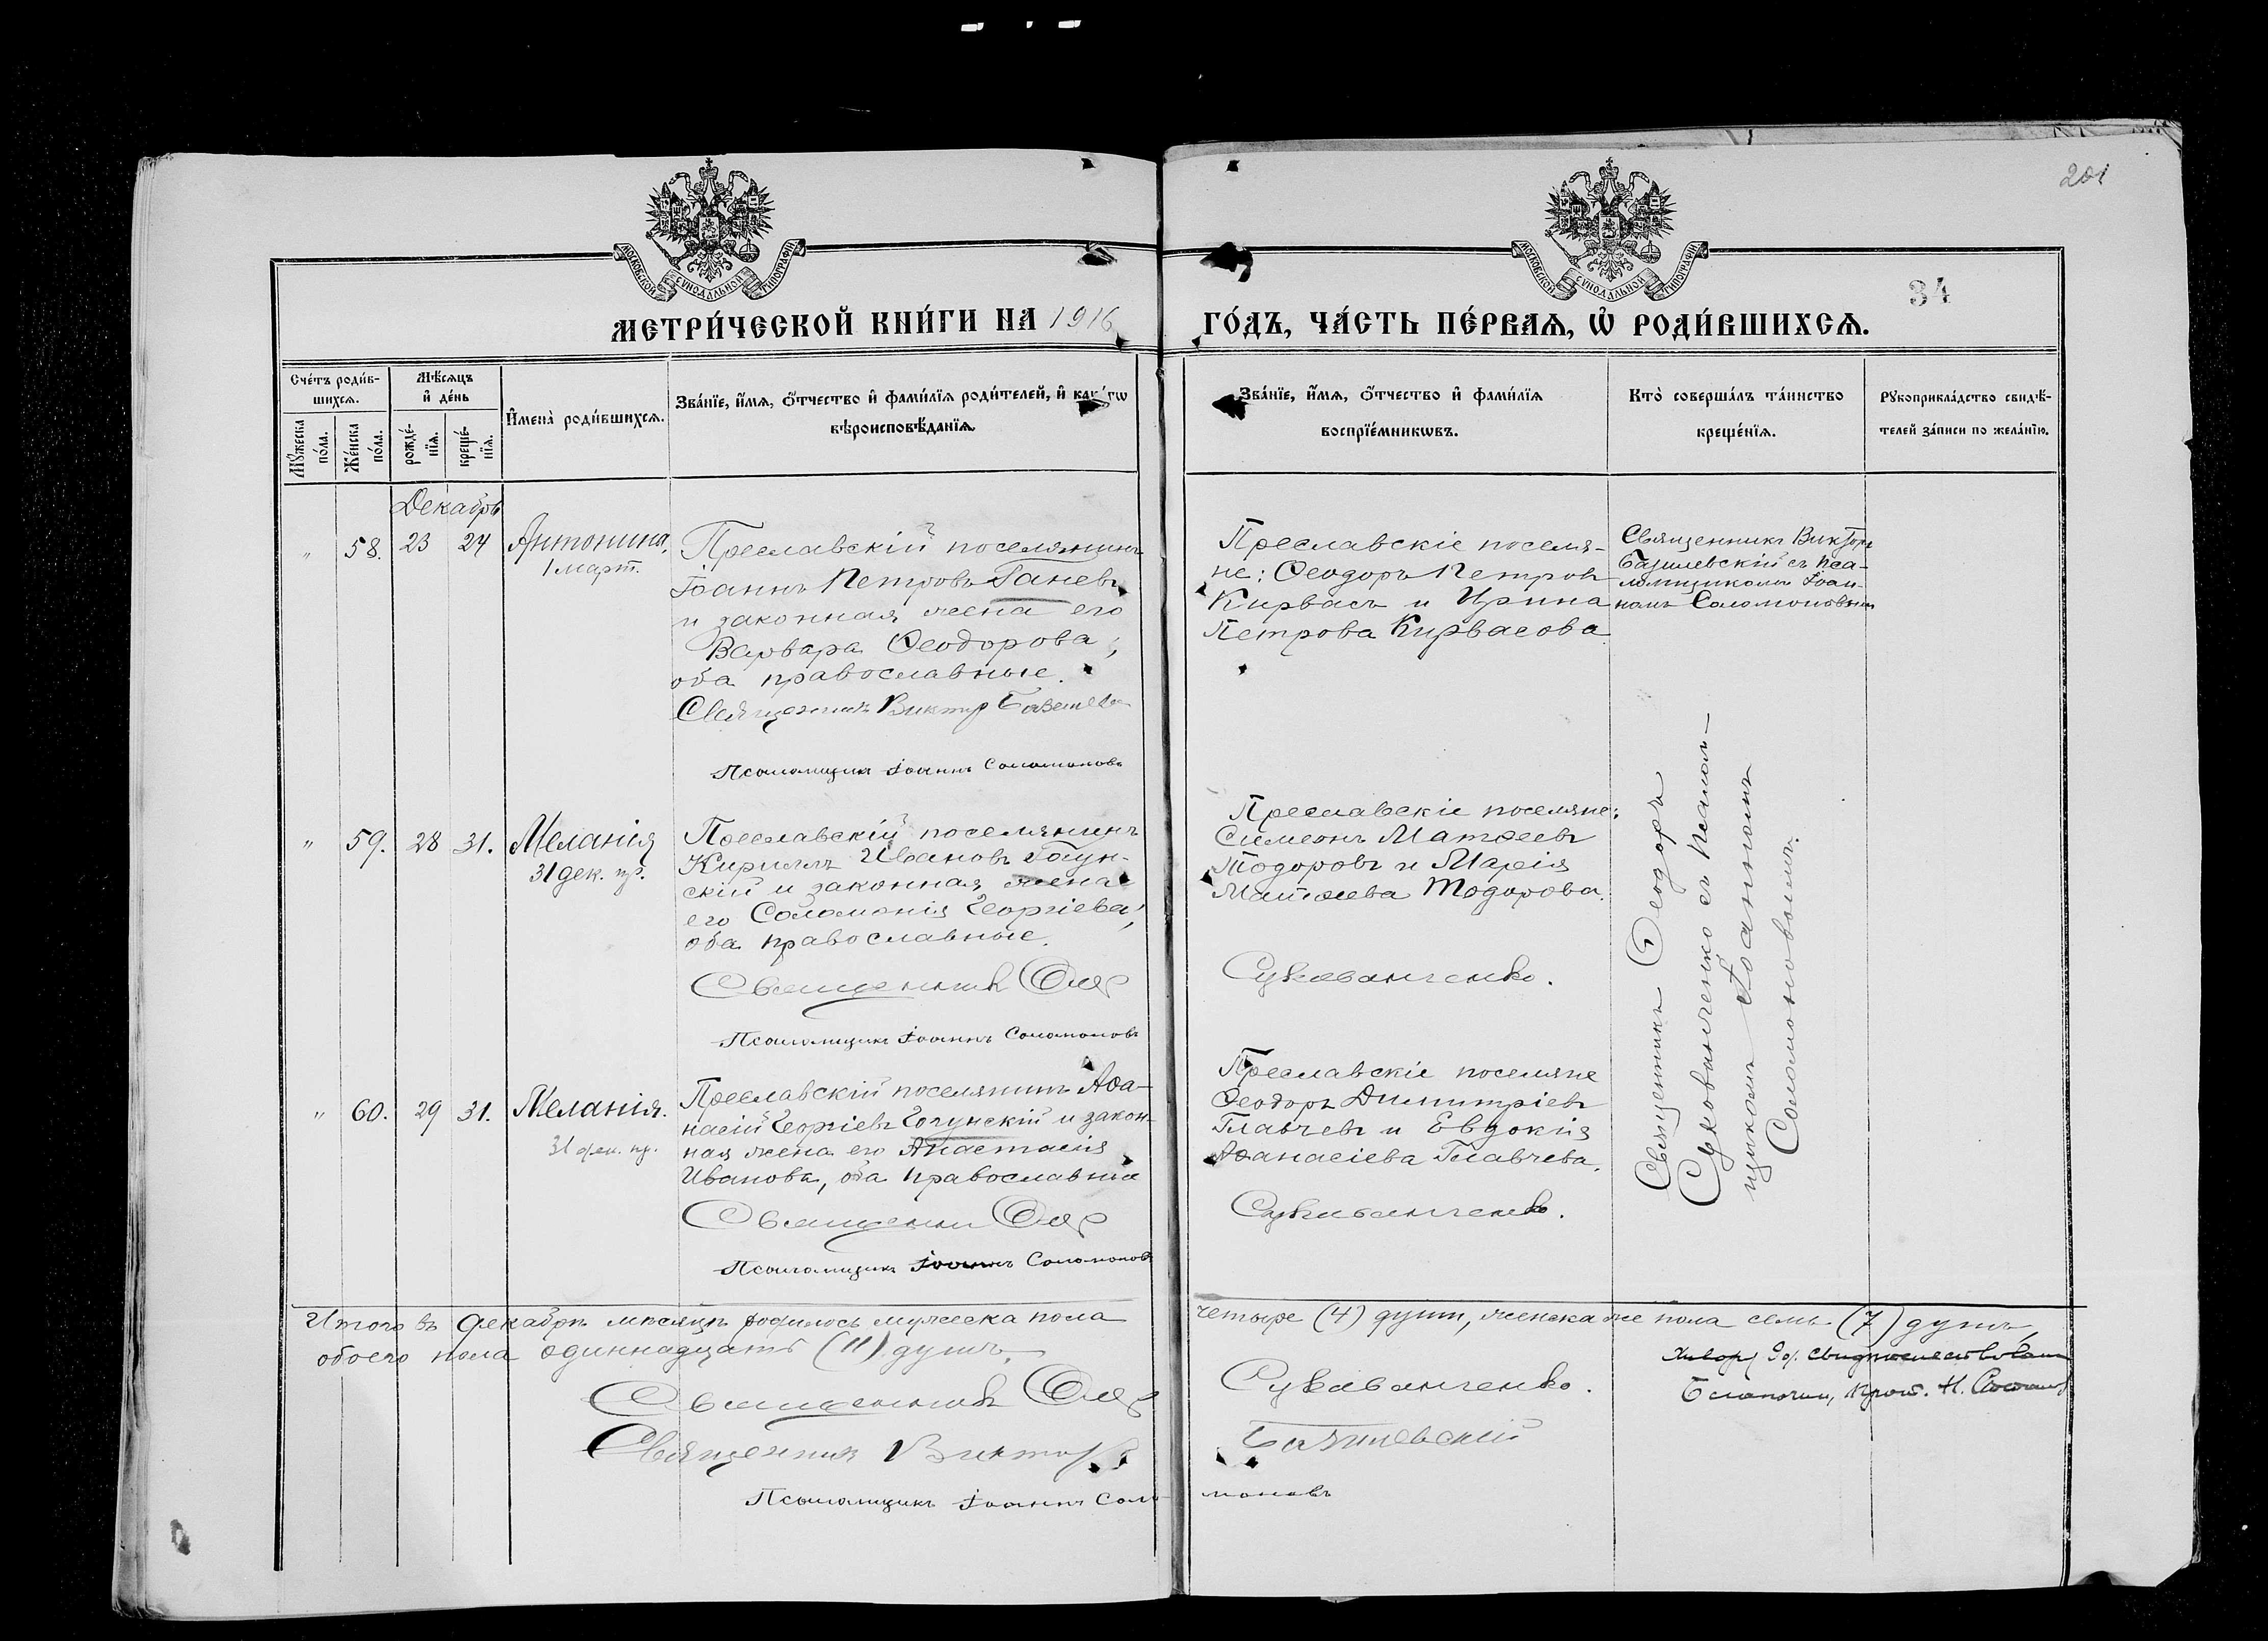 201
34
МОСКОВСКОЙ СѴНОДАЛЬНОЙ ТИПОГРАФІИ
МОСКОВСКОЙ СѴНОДАЛЬНОЙ ТИПОГРАФІИ
МЕТРИ́ЧЕСКОЙ КНИ́ГИ НА 1916
ГО́ДЪ, ЧА́СТЬ ПЕ́РВАѦ, Ѡ҆ РОДИ́ВШИХСѦ.
Сче́тъ роди́в-
шихсѧ.
Мꙋ́жеска по́ла.
Же́нска по́ла.
Мѣ́сѧцъ
и҆ де́нь
рожде́-
нїѧ.
креще́-
нїѧ.
И҆мена̀ роди́вшихсѧ.
Зва́нїе, и҆́мѧ, ѻ҆́тчество и҆ фами́лїѧ роди́телей, и҆ как гѡ
вѣроисповѣ́данїѧ.
Зва́нїе, и҆́мѧ, ѻ҆́тчество и҆ фами́лїѧ
воспрїе́мникѡвъ.
Кто̀ соверша́лъ та́инство
креще́нїѧ.
Рꙋкоприкла́дство свидѣ́-
телей за́писи по жела́нїю.
Декабрь
" 58. 23 24 Антонина,
1 март.
Преславскій поселянинъ
Іоаннъ Петровъ Ганевъ
и законная жена его
Варвара Ѳеодорова;
оба православные.
Священникъ Виктор
Псаломщикъ Іоаннъ Соломоновъ
Преславскіе поселя-
не: Ѳеодоръ Петров
Кирвасъ и Ирина
Петрова Кирвасова
Священникъ Викторъ
Базилевскій съ Пса-
ломщикомъ Іоан-
номъ Соломоновымъ
" 59. 28 31. Меланія
31 дек. пр.
Преславскій поселянинъ
Кирилъ Ивановъ Гаун-
скій и законная жена
его Соломонія Георгіева;
оба православные.
Священникъ Ѳеод
Псаломщикъ Іоаннъ Соломоновъ
Преславскіе поселяне:
Симеонъ Матѳеевъ
Тодоровъ и Марія
Матѳеева Тодорова.
Сукованченко.
Священникъ Ѳеодоръ
Сукованченко съ Псалом-
щикомъ Іоанномъ
Соломоновымъ.
" 60. 29 31. Меланія.
31 дек. пр.
Преславскій поселянинъ Аѳа-
насій Георгіевъ Гогунскій и закон-
ная жена его Анастасія
Иванова, оба православные
Священник Ѳеод
Псаломщикъ Іоаннъ Соломоновъ
Преславскіе поселяне
Ѳеодоръ Димитріевъ
Главчевъ и Евдокія
Аѳанасіева Главчева.
Сукованченко.
Итого въ Декабрѣ мѣсяцѣ родилось мужеска пола
четыре (4) душ, женска же пола семь (7) душъ,
обоего пола одиннадцать (11) душъ.
Священникъ Ѳеод
Сукованченко.
Священник Виктор
Базилевский
Псаломщикъ Іоаннъ Соло-
моновъ